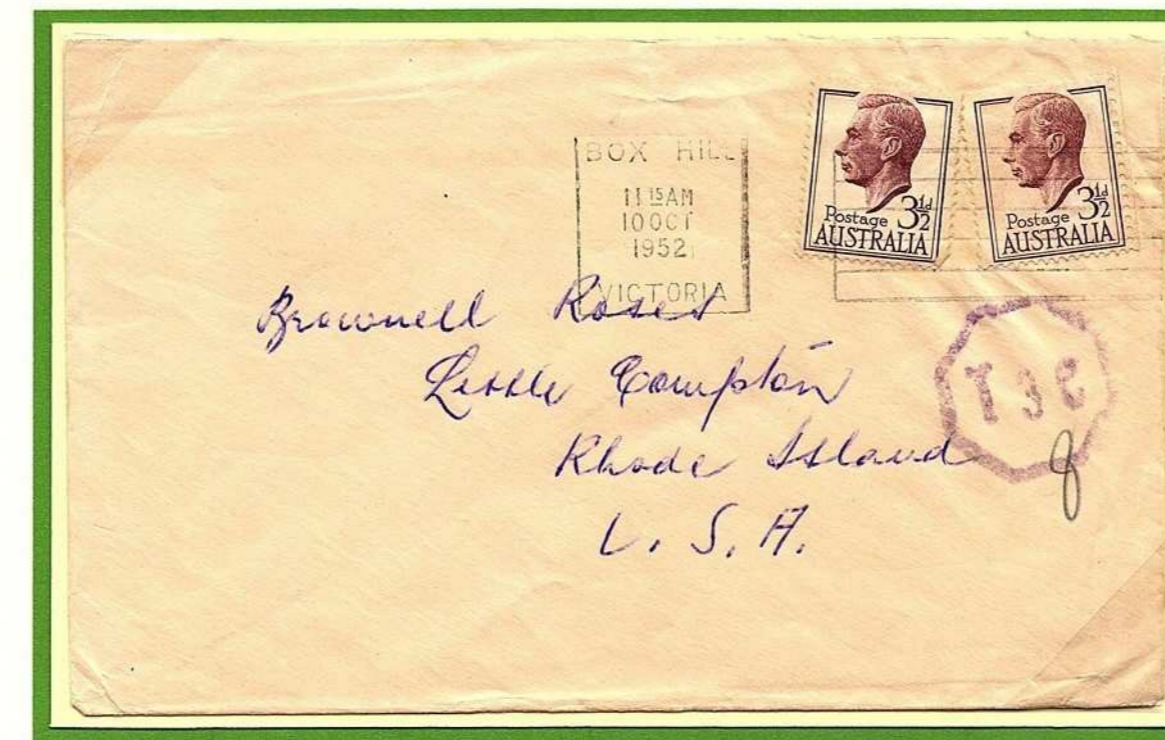 BOX HILL
11 15 AM
10 OCT
1952
VICTORIA
Postage 3½d
AUSTRALIA
Postage 3½d
AUSTRALIA
Brownell Roses
Little Compton
Rhode Island
U. S. A.
T